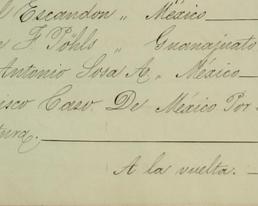 l Escandon „ México
F. Pohls „ Guanajuato
Antonio Sosa A „ México
isco Caso De México Por
tura.
A la vuelta.